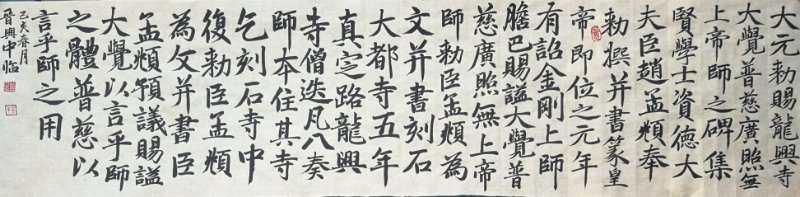 大元勅賜龍興寺
大覺普慈廣照無
上帝師之碑集
賢學士資德大
夫臣趙孟頫奉
勅撰并書篆皇
帝即位之元年
有詔金剛上師
膽巴賜謚大覺普
慈廣照無上帝
師勅臣孟頫為
文并書刻石
大都寺五年
真定路龍興
寺僧迭凡八奏
師本住其寺
乞刻石寺中
復勅臣孟頫
為文并書臣
孟頫預議賜謚
大覺以言乎師
之體普慈以
言乎師之用
己亥春月
晉興中臨